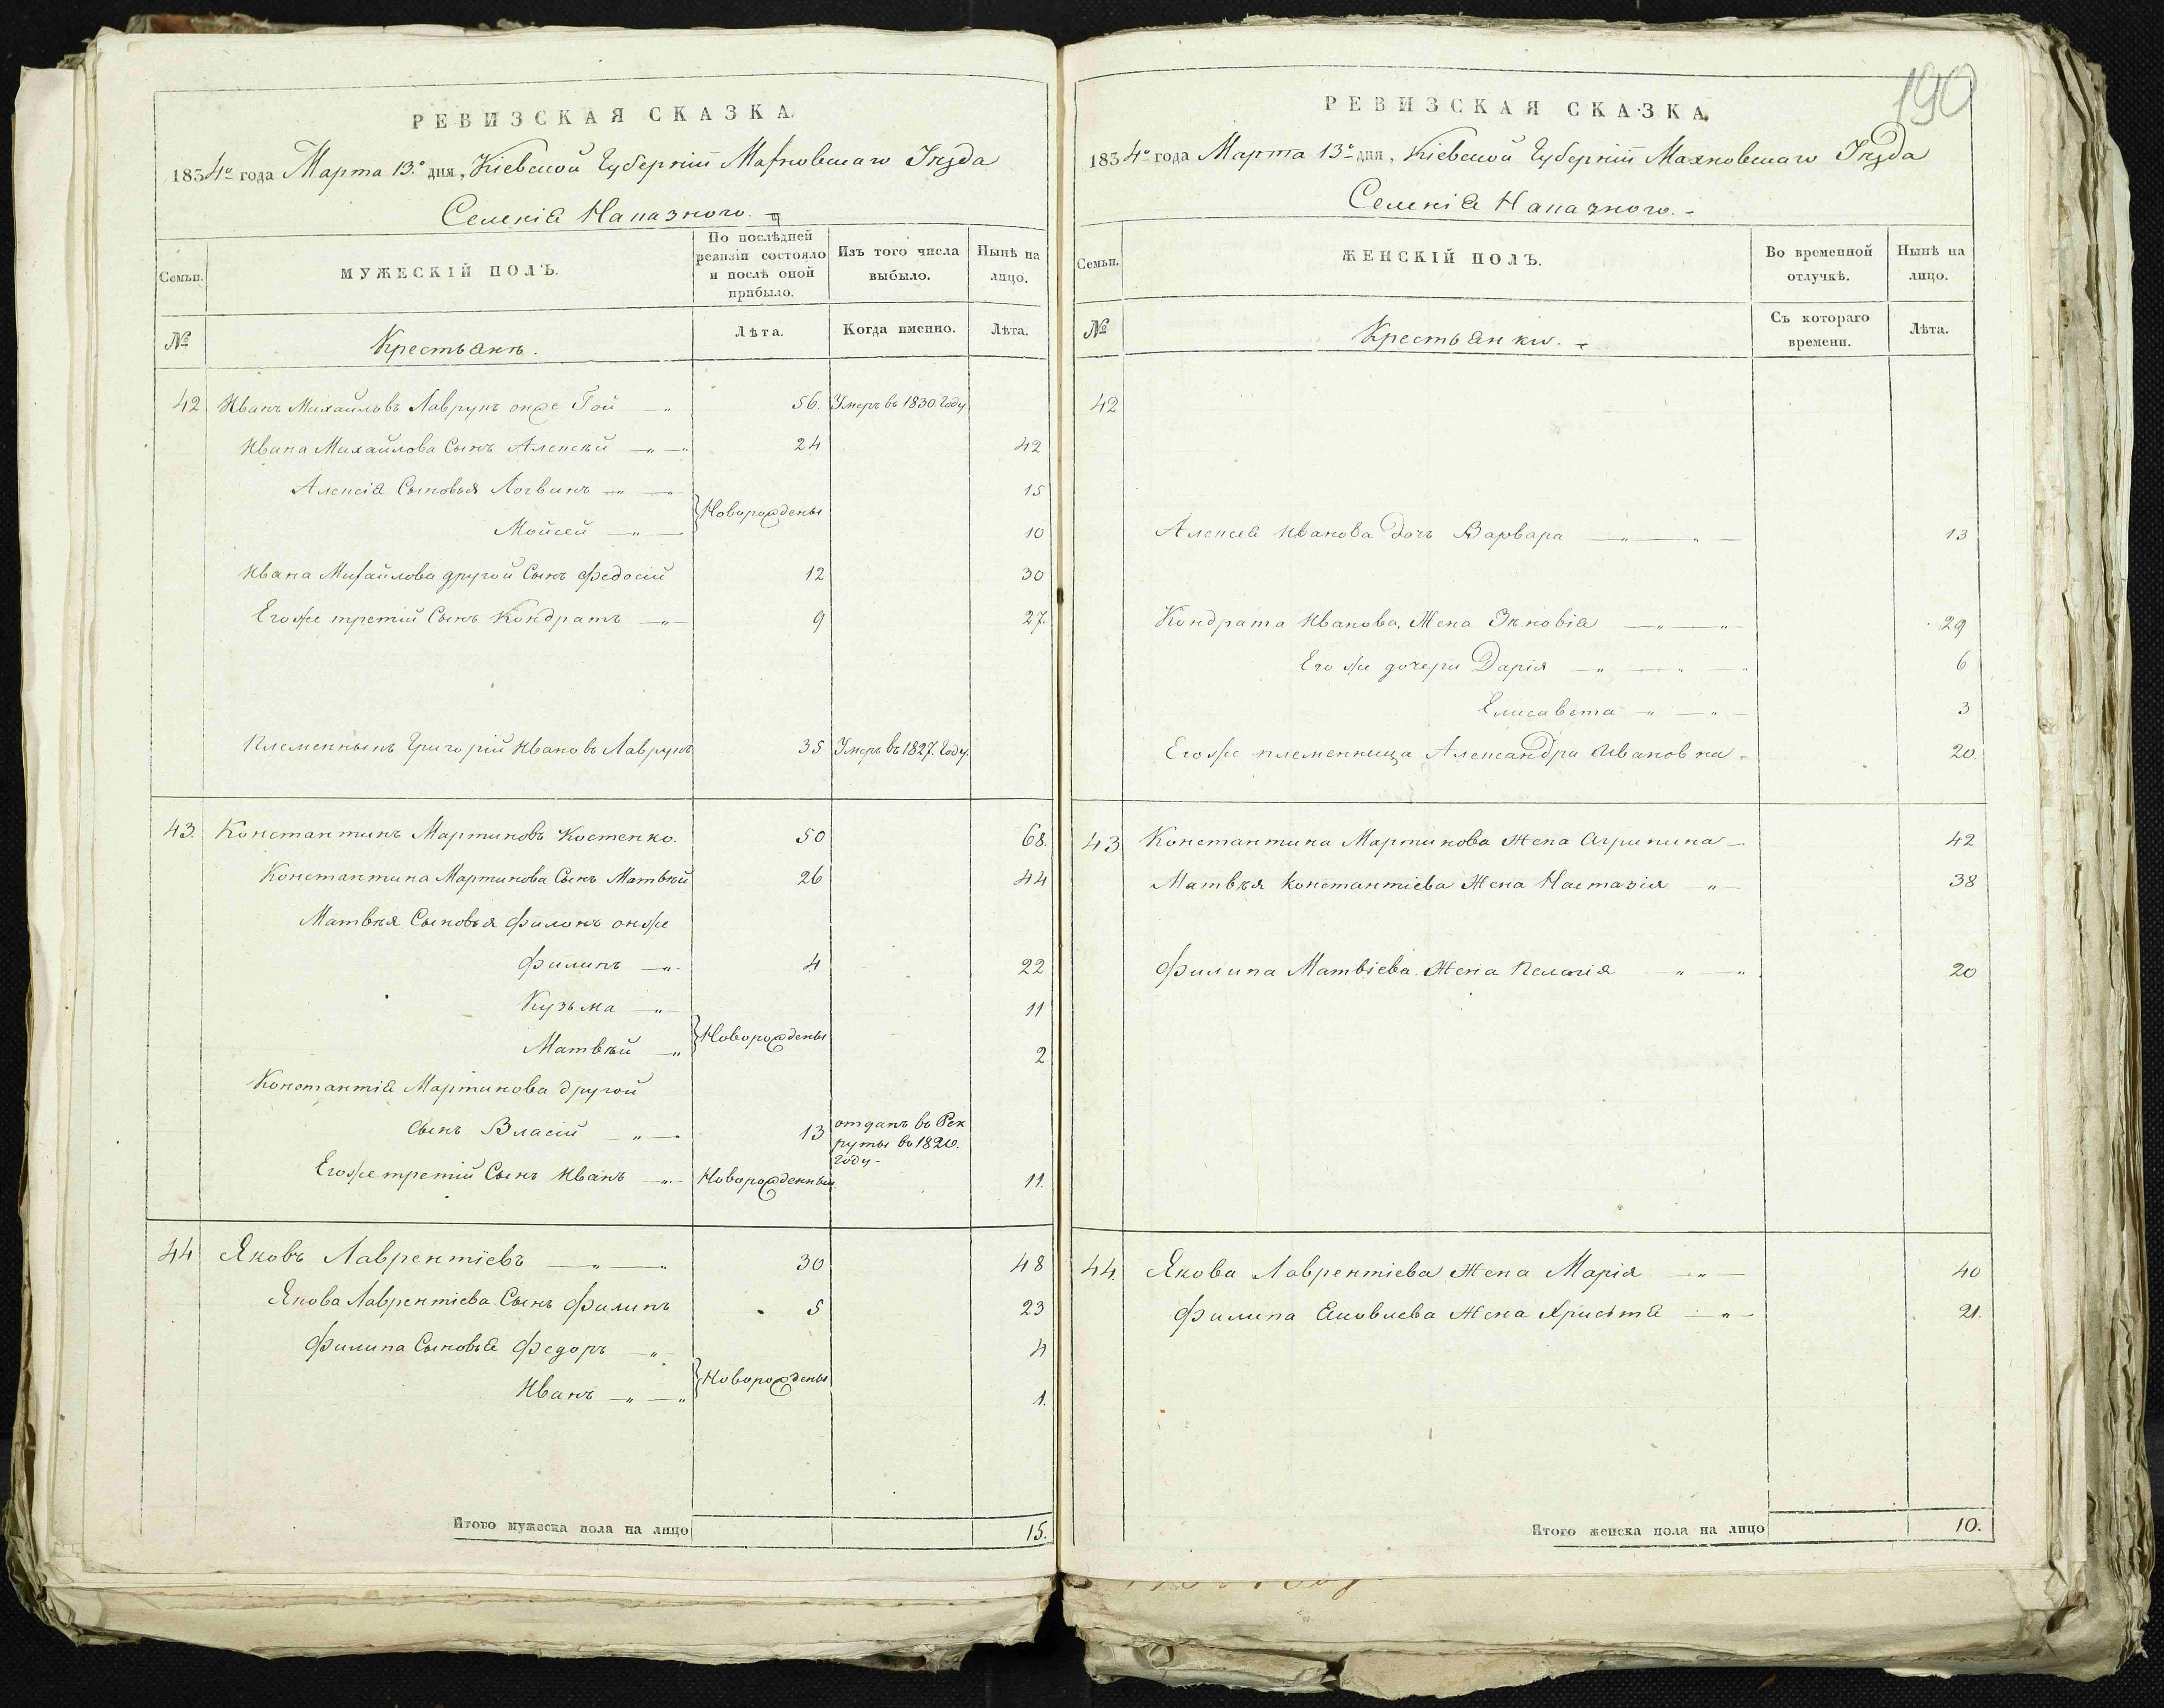 РЕВИЗСКАЯ СКАЗКА.
1834го года Марта 13го дня, Кіевской Губерніи Махновскаго Уѣзда
Селенія
Семьи.
МУЖЕСКІЙ ПОЛЪ.
По послѣдней ревизіи состояло и послѣ оной прибыло.
Изъ того числа выбыло.
Нынѣ на лицо.
№
Крестьянъ.
Лѣта.
Когда именно.
Лѣта.
42 Иванъ Михайловъ Лаврукъ онже Гой 56. Умеръ въ 1830. Году
Ивана Михайлова Сынъ Алексѣй 24 42
Алексія Сыновья Логвинъ 15
Новорождены
Мойсей 10
Ивана Михайлова другой Сынъ Федосій 12 30
Егоже третій Сынъ Кондратъ 9 27.
Племенныкъ Григорій Ивановъ Лаврукъ 35 Умеръ въ 1827. Году.
43. Константинъ Мартиновъ Костенко. 50 68.
Константина Мартинова Сынъ Матвѣй 26 44
Матвѣя Сыновья Филонъ онже
Филипъ 4 22
Кузьма 11
Новорождены
Матвѣй 2
Константія Мартинова другой
сынъ Власій 13 отданъ въ Рек
руты въ 1820.
году
Егоже третій Сынъ Иванъ Новорожденный 11.
44 Яковъ Лаврентіевъ 30 48
Якова Лаврентіева Сынъ Филипъ 5 23
Филипа Сыновья Федоръ 4
Новорождены
Иванъ 1.
Итого мужеска пола на лицо 15.
190
РЕВИЗСКАЯ СКАЗКА.
1834го года Марта 13го дня, Кіевской Губерніи Махновскаго Уѣзда
Селенія
Семьи.
ЖЕНСКІЙ ПОЛЪ.
Во временной отлучкѣ.
Нынѣ на лицо.
№
Крестьянки.
Съ котораго времени.
Лѣта.
42
Алексея Иванова дочъ Варвара 13
Кондрата Иванова, Жена Зѣновія 29
Его же дочери Дарія 6
Елисавета 3
Егоже племенница Александра Ивановна 20.
43 Константина Мартинова Жена Агрипина 42
Матвѣя Константіева Жена Настазія 38
Филипа Матвіева Жена Пелагія 20
44. Якова Лаврентіева Жена Марія 40
Филипа Яковлева Жена Христя 21.
Итого женска пола на лицо 10.